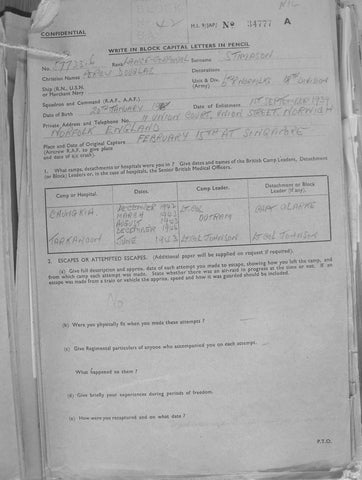 CONFIDENTIAL
M.I. 9/JAP/ No 34777 A
WRITE IN BLOCK CAPITAL LETTERS IN PENCIL
No. Rank LANCE-CORPORAL Surname
Christian Names PERCY DOUGLAS Decorations
Ship (R.N., U.S.N. or Merchant Navy) Unit & Div. DIVISION
Squadron and Command (R.A.F., A.A.F.)
Date of Birth JANUARY Date of Enlistment 1ST SEPTEMBER 1939
Private Address and Telephone No. 11 UNION COURT, UNION STREET, NORWICH
NORFOLK ENGLAND
Place and Date of Original Capture FEBRUARY 15TH AT SINGAPORE
(Aircrew R.A.F. to give place and date of a/c crash).
1. What ramps, detachments or hospitals were you in? Give dates and names of the British Camp Leaders, Detachment
(or Block) Leaders or, in the case of hospitals, the Senior British Medical Officers.
Camp or Hospital. Dates. Camp Leader. Detachment or Block Leader (if any).
DECEMBER
MARCH 1943
AUGUST 1943
LT COL OUTRAM CAPT CLARKE
DECEMBER
JUNE 1943 LT COL JOHNSON LT COL JOHNSON
2. ESCAPES OR ATTEMPTED ESCAPES. (Additional paper will be supplied on request if required).
(a) Give full description and approx. date of each attempt you made to escape, showing how you left the camp, and
from which camp each attempt was made. State whether there was an air-raid in progress at the time or not. If an
escape was made from a train or vehicle the approx. speed and how it was guarded should be included.
No
(b) Were you physically fit when you made these attempts ?
(c) Give Regimental particulars of anyone who accompanied you on each attempt.
What happened to them ?
(d) Give briefly your experiences during periods of freedom.
(e) How were you recaptured and on what date ?
P.T.O.